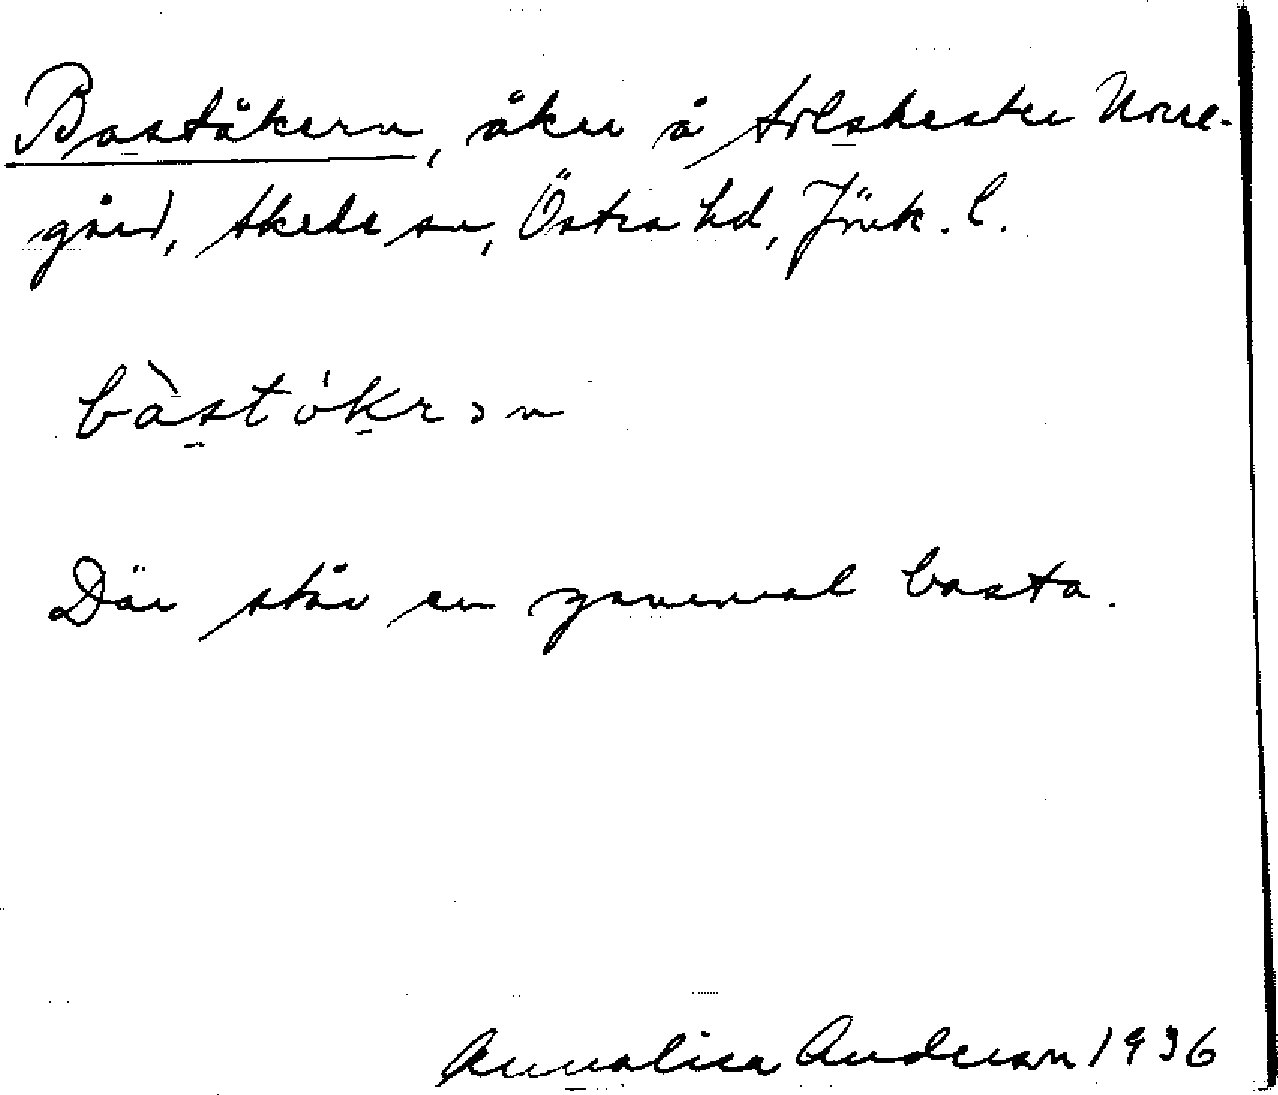 Baståkern, åker å Solshester Norre-
gård, Skede sn, Östra hd, Jönk. l.
bàstókrən
Där står en gammal basta.
Annalisa Anderson 1936